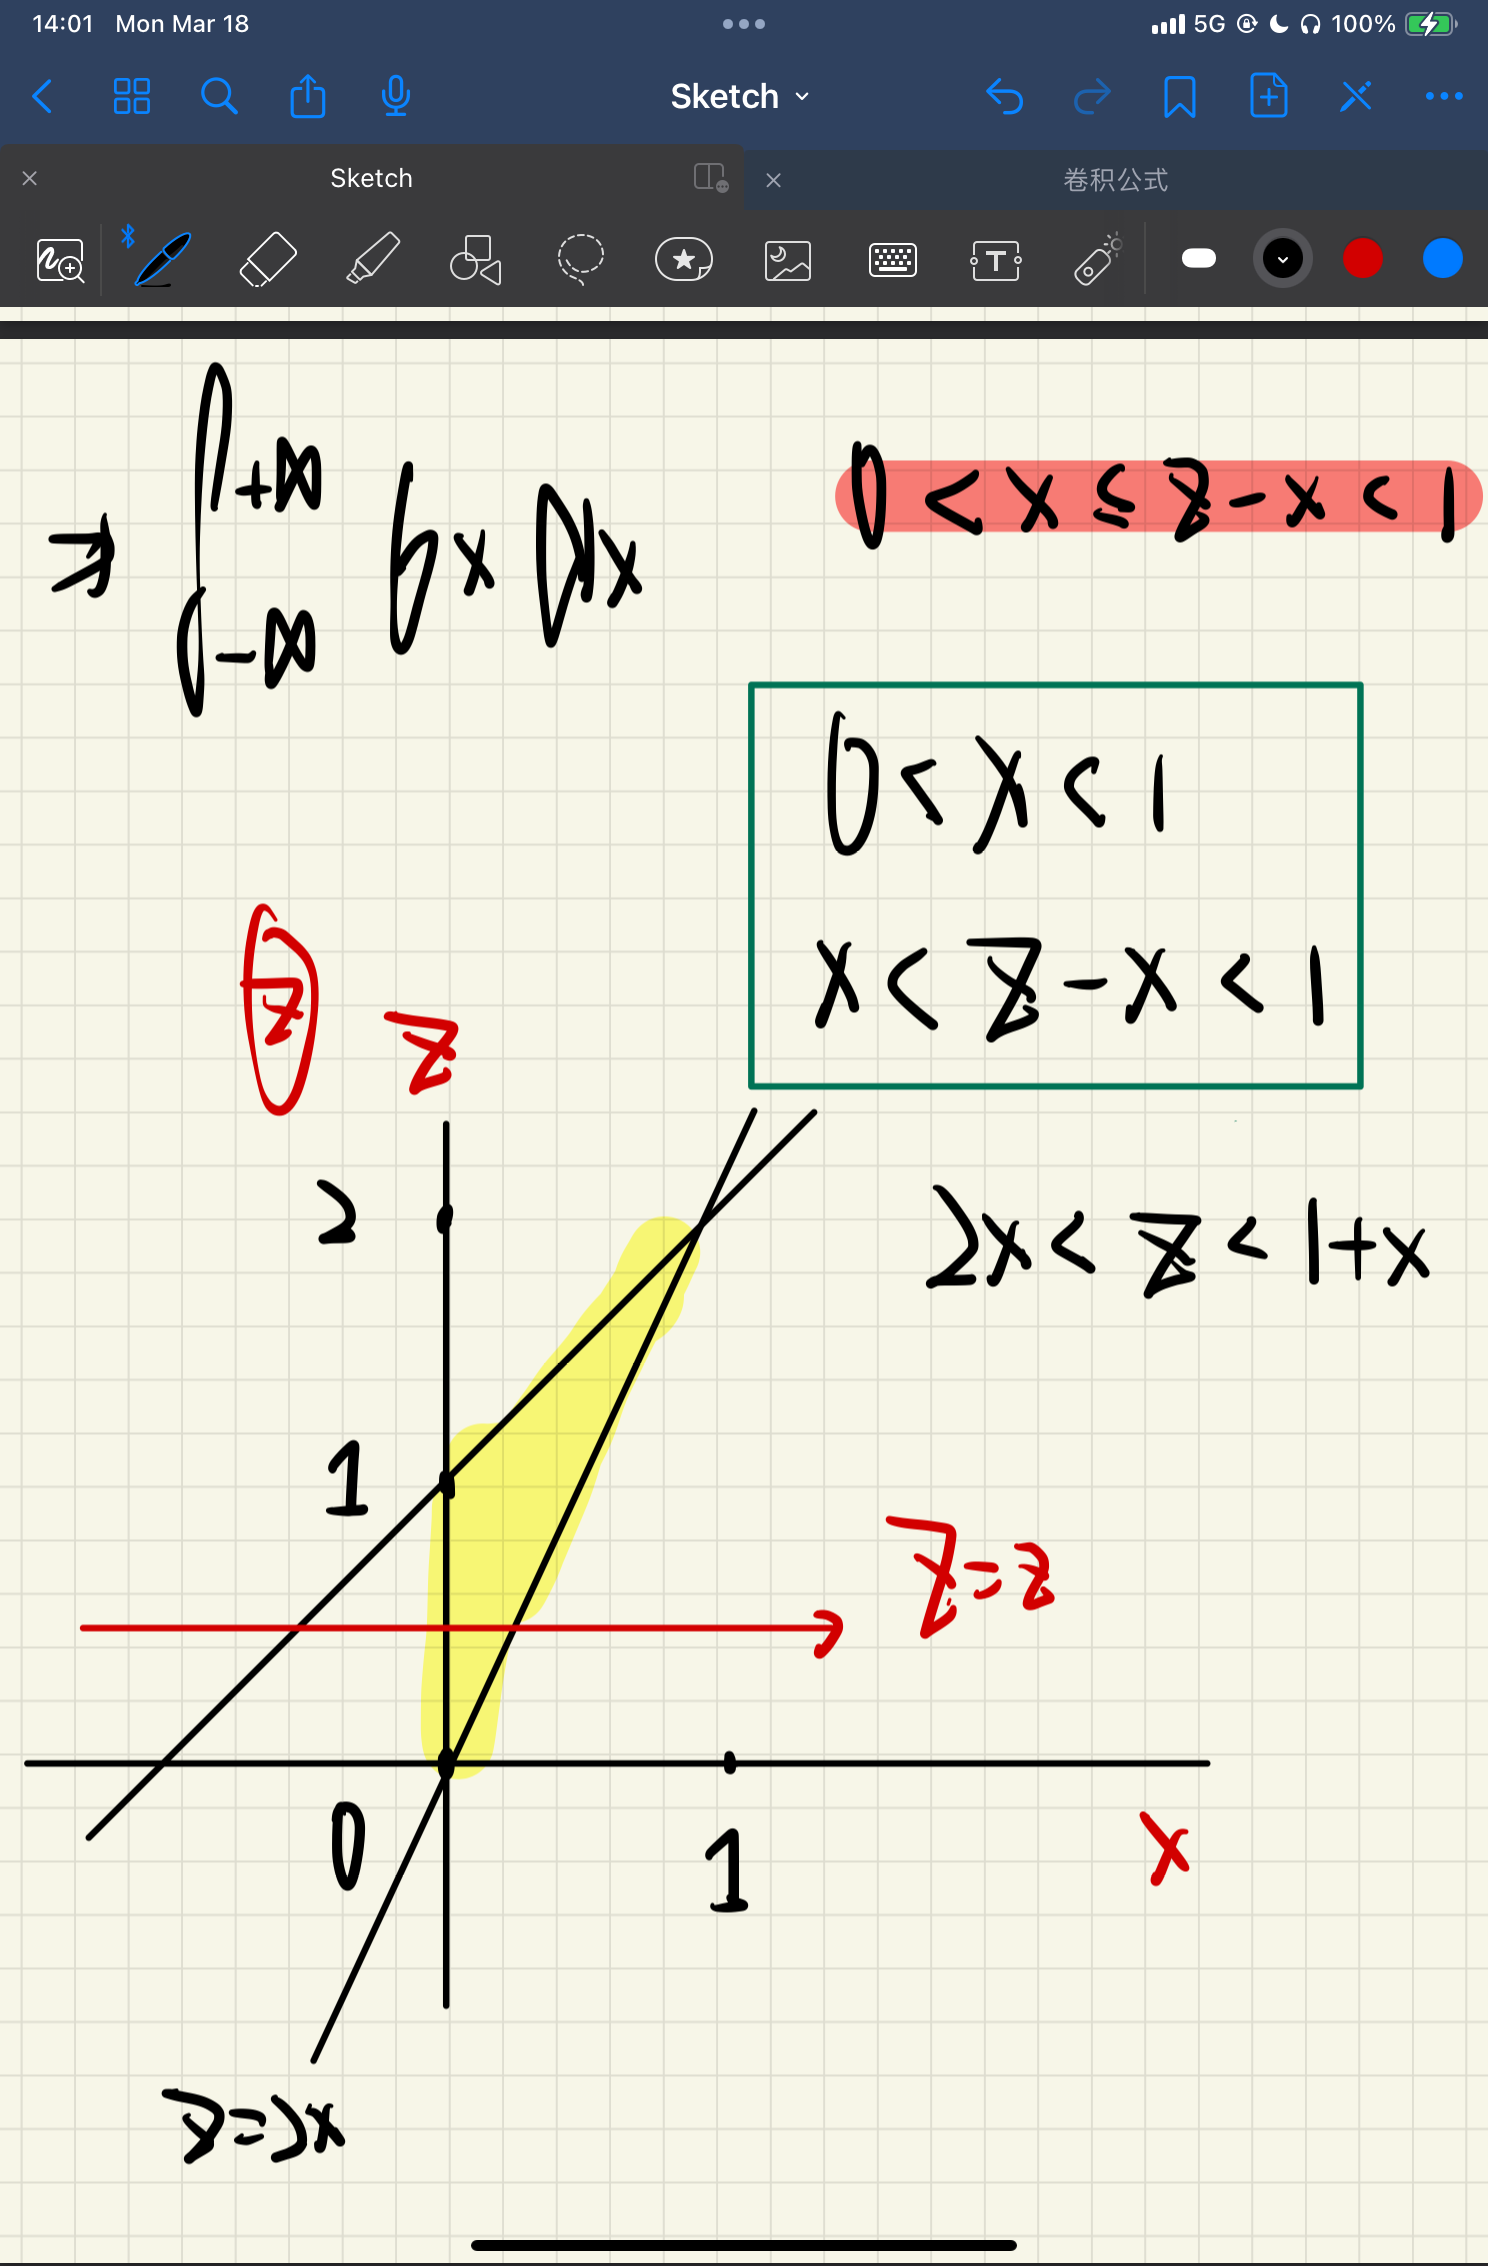 14:01 Mon Mar 18
5G 100%
Sketch
Sketch
卷积公式
T
⇒ ∫ +∞ -∞ 6x dx
0 < x ≤ z - x < 1
0 < x < 1
x < z - x < 1
z z
2
2x < z < 1+x
1
z=z
0 1 x
z=2x